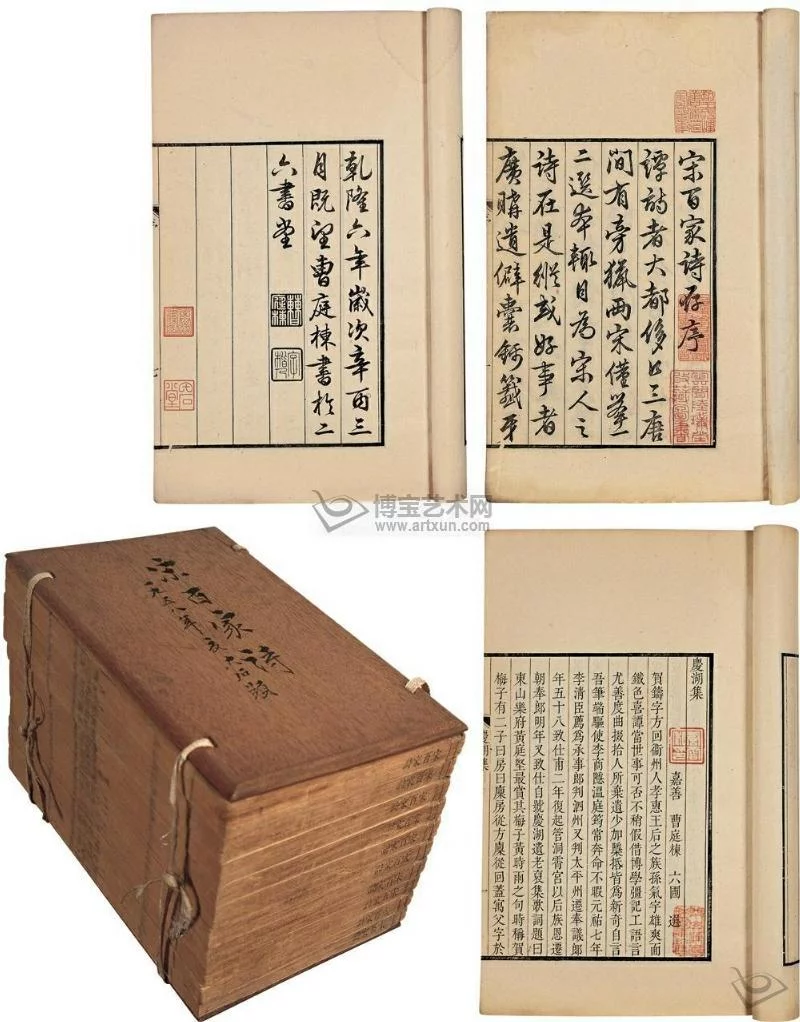 乾隆六年歲次辛酉三
月既望曹庭棟書於二
六書堂
宋百家詩存序
譚詩者大都侈口三唐
間有旁獵兩宋僅舉一
二選本輒目為宋人之
詩在是縱或好事者
廣購遺僻囊錦籤牙
博宝艺术网
www.artxun.com
宋百家詩
一九五八年
慶湖集
嘉善 曹庭棟 六圃 選
賀鑄字方回衞州人孝惠王后之族孫氣宇雄爽面
鐵色喜譚當世事可否不稍假借博學彊記工語言
尤善度曲掇拾人所棄遺少加檃括皆為新奇自言
吾筆端驅使李商隱溫庭筠常奔命不暇元祐七年
李清臣薦為承事郎判泗州又判太平州遷奉議郎
年五十八致仕甫二年復起管洞霄宮以后族恩遷
朝奉郎明年又致仕自號慶湖遺老裒集歌詞題曰
東山樂府黃庭堅最賞其梅子黃時雨之句時稱賀
梅子有二子曰房曰廩房從方廩從回蓋寓父字於
慶湖集